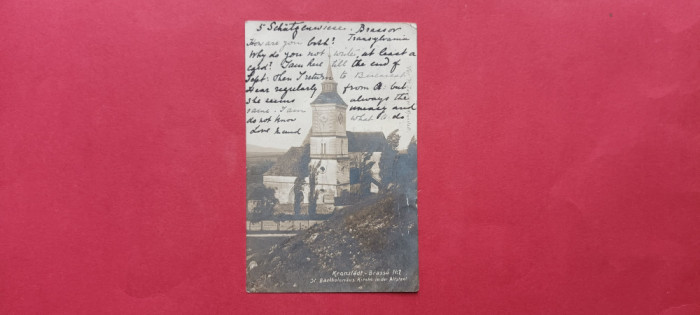 5 Schützenwiese. Brassor
Transylvania
How are you both?
Why do you not write, at least a
card? I am here till the end of
Sept. Then I return to
Hear regularly from A but
she seems always the
same. I am uneasy and
do not know what to do
Love
Kronstadt - Brassó No 1
St. Bartholomäus Kirche in der Altstadt